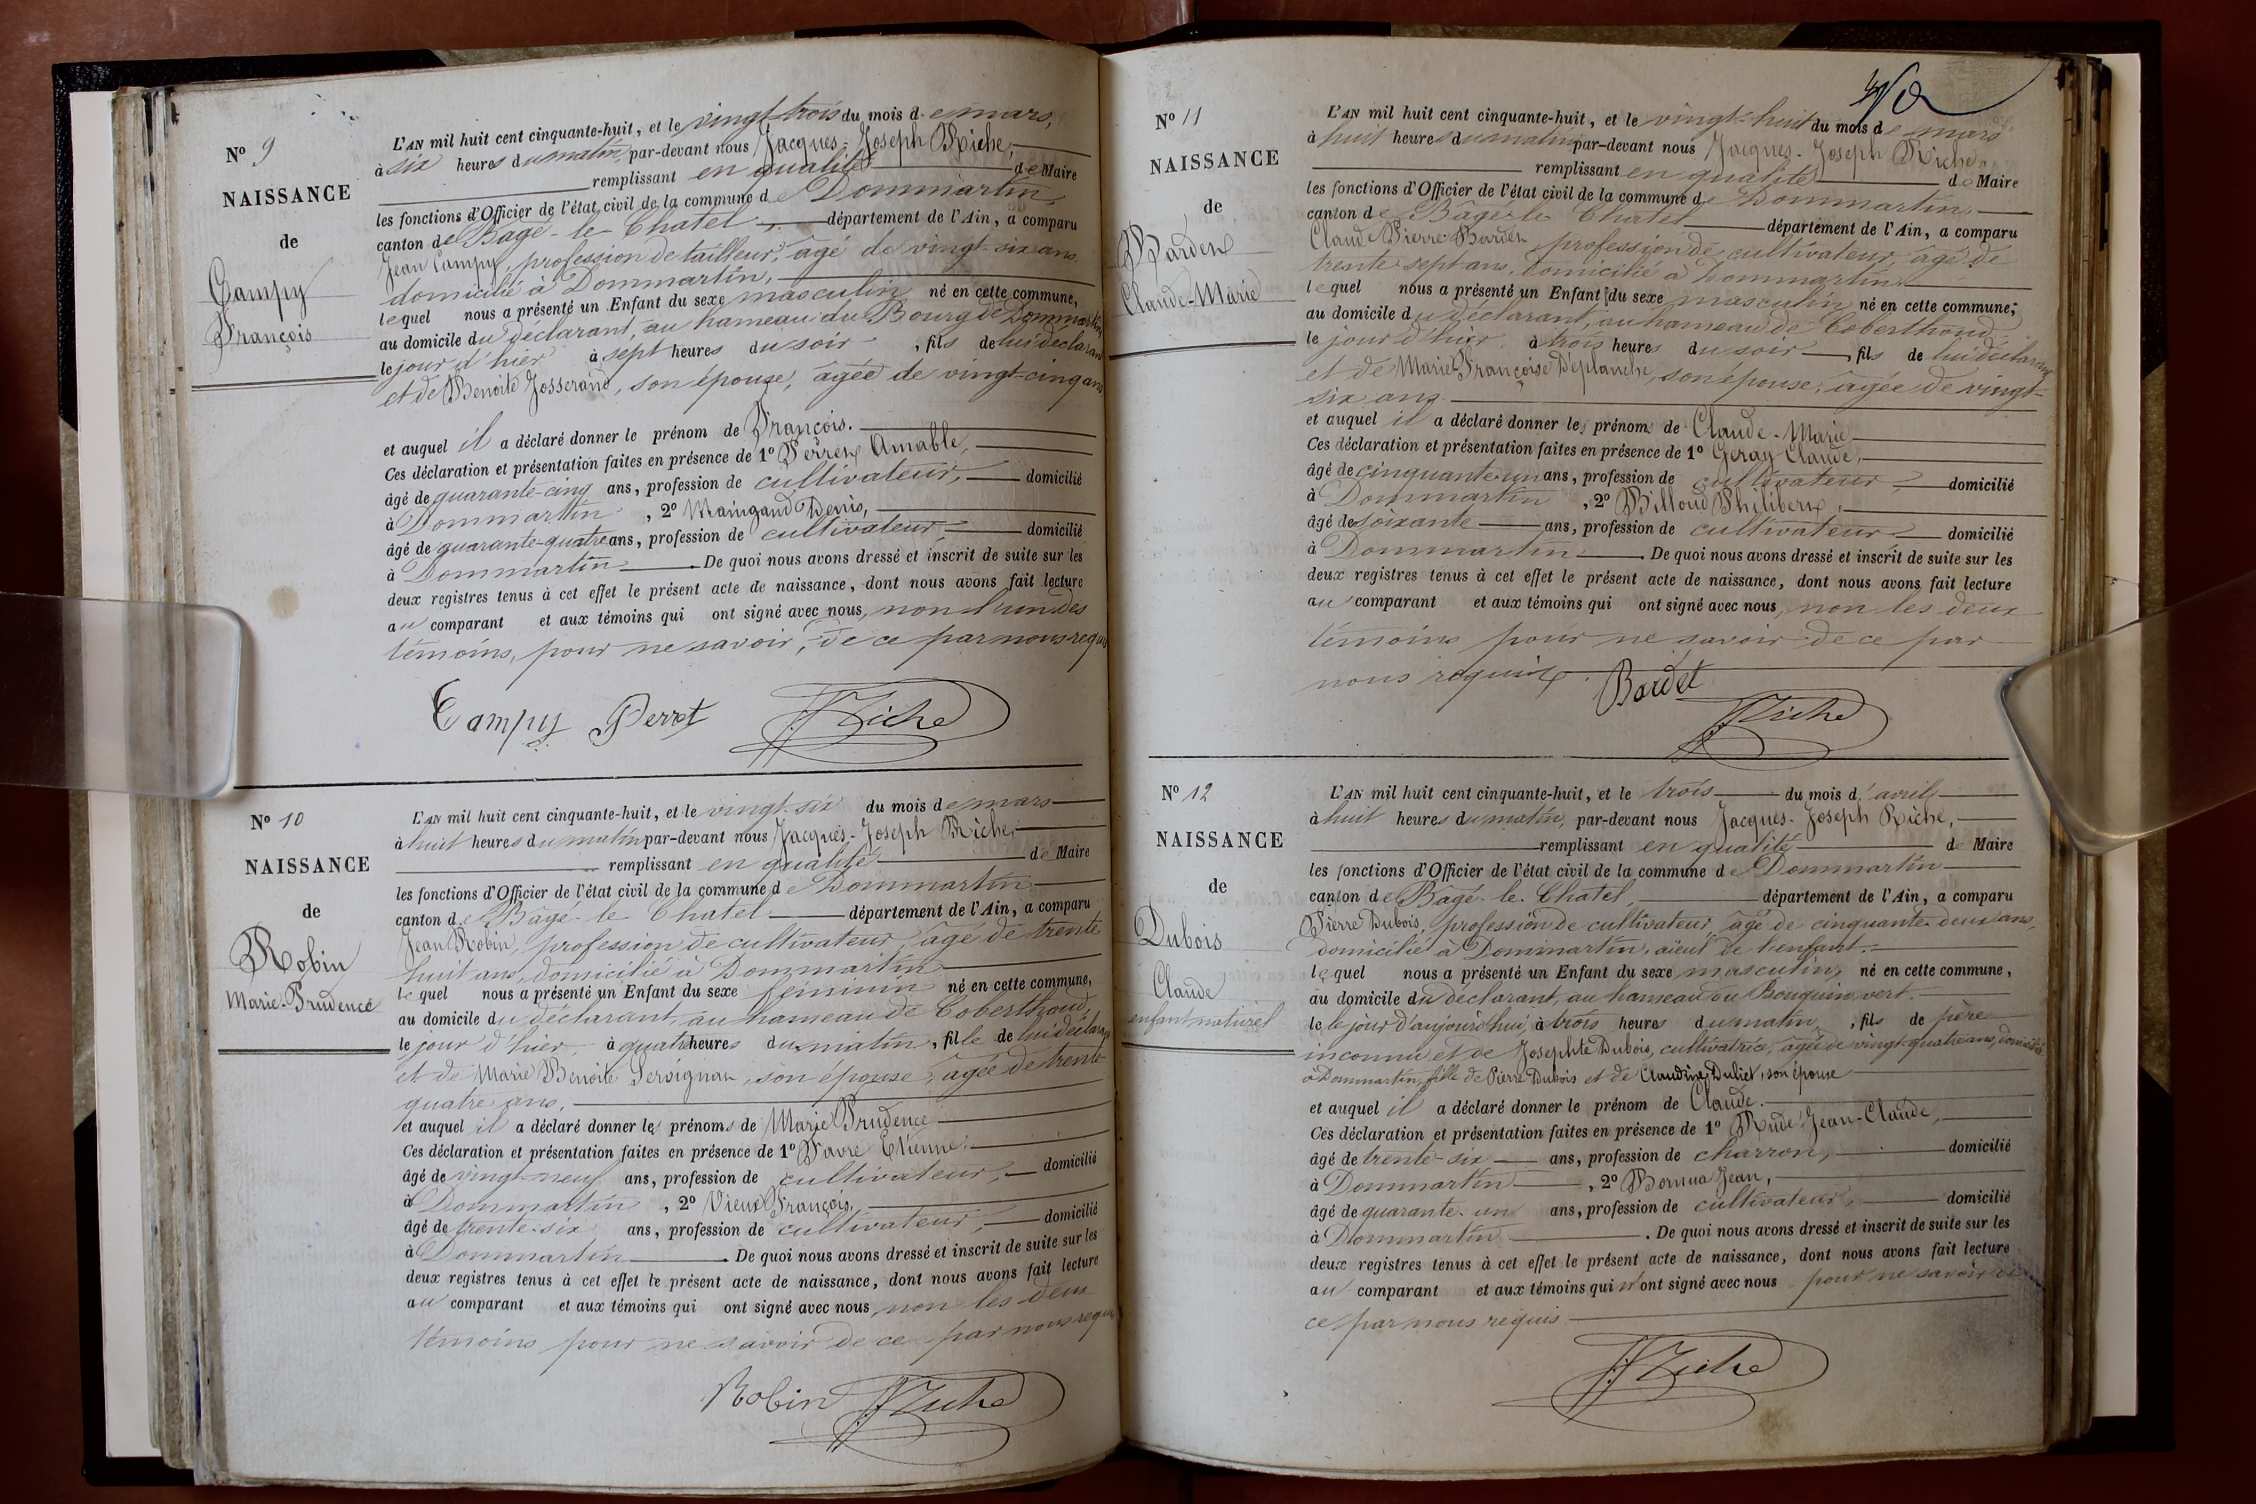 N° 9
NAISSANCE
de
Campy
François
L'AN mil huit cent cinquante-huit, et le vingt-trois du mois de mars,
à six heures du matin, par-devant nous Jacques-Joseph Riche,
remplissant en qualité de Maire
les fonctions d'Officier de l'état civil de la commune de Dommartin
canton de Bâgé-le-Chatel département de l'Ain, a comparu
Jean Campy, profession de tailleur, âgé de vingt-six ans
domicilié à Dommartin,
lequel nous a présenté un Enfant du sexe masculin né en cette commune,
au domicile du déclarant, au hameau du Bourg de Dommartin
le jour d'hier à sept heures du soir, fils de lui déclarant
et de Benoite Josserand, son épouse, âgée de vingt-cinq ans
et auquel il a déclaré donner le prénom de François.
Ces déclaration et présentation faites en présence de 1° Perret Amable,
âgé de quarante-cinq ans, profession de cultivateur, domicilié
à Dommartin, 2° Maingaud Denis,
âgé de quarante-quatre ans, profession de cultivateur, domicilié
à Dommartin. De quoi nous avons dressé et inscrit de suite sur les
deux registres tenus à cet effet le présent acte de naissance, dont nous avons fait lecture
au comparant et aux témoins qui ont signé avec nous, non l'un des
témoins, pour ne savoir, de ce par nous requis
Campy Perret JJRiche
N° 10
NAISSANCE
de
Robin
Marie-Prudence
L'AN mil huit cent cinquante-huit, et le vingt-six du mois de mars
à huit heures du matin par-devant nous Jacques-Joseph Riche,
remplissant en qualité de Maire
les fonctions d'Officier de l'état civil de la commune de Dommartin
canton de Bâgé-le-Chatel département de l'Ain, a comparu
Jean Robin, profession de cultivateur, âgé de trente
huit ans, domicilié à Dommartin
lequel nous a présenté un Enfant du sexe féminin né en cette commune,
au domicile du déclarant, au hameau de Coberthoud,
le jour d'hier, à quatre heures du matin, fille de lui déclarant
et de Marie Benoite Servignat, son épouse, âgée de trente
quatre ans,
et auquel il a déclaré donner les prénoms de Marie Prudence
Ces déclaration et présentation faites en présence de 1° Favre Etienne,
âgé de vingt-neuf ans, profession de cultivateur, domicilié
à Dommartin, 2° Vieux François,
âgé de trente-six ans, profession de cultivateur, domicilié
à Dommartin. De quoi nous avons dressé et inscrit de suite sur les
deux registres tenus à cet effet le présent acte de naissance, dont nous avons fait lecture
au comparant et aux témoins qui ont signé avec nous, non les deux
témoins pour ne savoir de ce par nous requis
Robin JJRiche
N° 11
NAISSANCE
de
Bardet
Claude-Marie
L'AN mil huit cent cinquante-huit, et le vingt-huit du mois de mars
à huit heures du matin par-devant nous Jacques-Joseph Riche,
remplissant en qualité de Maire
les fonctions d'Officier de l'état civil de la commune de Dommartin,
canton de Bâgé-le-Chatel département de l'Ain, a comparu
Claude Pierre Bardet, profession de cultivateur, âgé de
trente-sept ans, domicilié à Dommartin,
lequel nous a présenté un Enfant du sexe masculin né en cette commune,
au domicile du déclarant, au hameau de Coberthoud
le jour d'hier, à trois heures du soir, fils de lui déclarant
et de Marie Françoise Déplanche, son épouse, âgée de vingt-
six ans
et auquel il a déclaré donner les prénoms de Claude-Marie
Ces déclaration et présentation faites en présence de 1° Geray Claude,
âgé de cinquante-un ans, profession de cultivateur, domicilié
à Dommartin, 2° Billoud Philibert,
âgé de soixante ans, profession de cultivateur domicilié
à Dommartin. De quoi nous avons dressé et inscrit de suite sur les
deux registres tenus à cet effet le présent acte de naissance, dont nous avons fait lecture
au comparant et aux témoins qui ont signé avec nous, non les deux
témoins pour ne savoir de ce par
nous requis.
Bardet JJRiche
N° 12
NAISSANCE
de
Dubois
Claude
enfant naturel
L'AN mil huit cent cinquante-huit, et le trois du mois d'avril
à huit heures du matin, par-devant nous Jacques-Joseph Riche,
remplissant en qualité de Maire
les fonctions d'Officier de l'état civil de la commune de Dommartin
canton de Bâgé-le-Chatel, département de l'Ain, a comparu
Pierre Dubois, profession de cultivateur, âgé de cinquante-deux ans,
domicilié à Dommartin, aïeul de l'enfant.
lequel nous a présenté un Enfant du sexe masculin, né en cette commune,
au domicile du déclarant, au hameau du Bouquin vert.
le le jour d'aujourd'hui, à trois heures du matin, fils de père
inconnu et de Josephte Dubois, cultivatrice, âgée de vingt-quatre ans, domiciliée
à Dommartin, fille de Pierre Dubois et de Claudine Duliet, son épouse
et auquel il a déclaré donner le prénom de Claude.
Ces déclaration et présentation faites en présence de 1° Rude Jean-Claude,
âgé de trente-six ans, profession de charron, domicilié
à Dommartin, 2° Bernua Jean,
âgé de quarante-un ans, profession de cultivateur, domicilié
à Dommartin. De quoi nous avons dressé et inscrit de suite sur les
deux registres tenus à cet effet le présent acte de naissance, dont nous avons fait lecture
au comparant et aux témoins qui n'ont signé avec nous pour ne savoir de
ce par nous requis
JJRiche